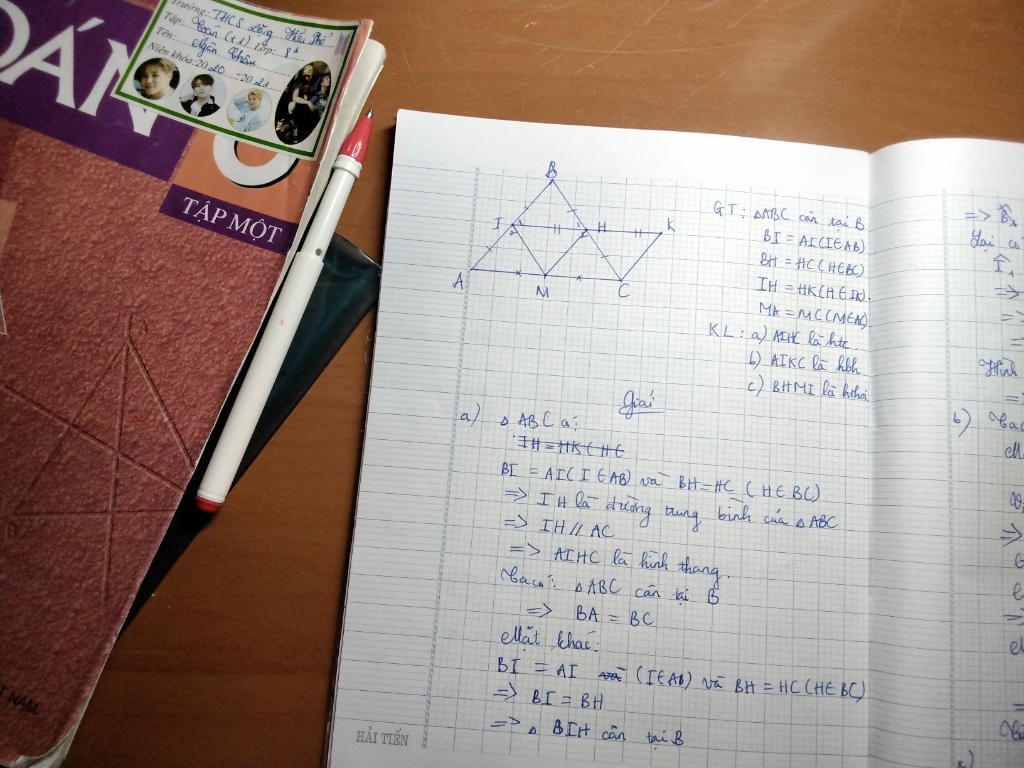 Trường: THCS
Tập: Toán (T1) Lớp: 8
Tên: Ngân
Niên khóa: 2020 - 2021
OÁN
8
TẬP MỘT
T NAM
B
I
H
K
A
M
C
GT: △ABC cân tại B
BI = AI (I∈AB)
BH = HC (H∈BC)
IH = HK (H∈IK).
MA = MC (M∈AC)
KL: a) AIHC là htc
b) AIKC là hbh
c) BHMI là hthoi
Giải
a) △ABC có:
IH = HK (H∈
BI = AI (I∈AB) và BH = HC (H∈BC)
=> IH là đường trung bình của △ABC
=> IH // AC
=> AIHC là hình thang.
Ta có: △ABC cân tại B
=> BA = BC
Mặt khác:
BI = AI và (I∈AB) và BH = HC (H∈BC)
=> BI = BH
=> △BIH cân tại B
HẢI TIẾN
=> B̂
Lại có
Î₁
=>
=>
=>
Hình
=>
b)
=>
=>
=>